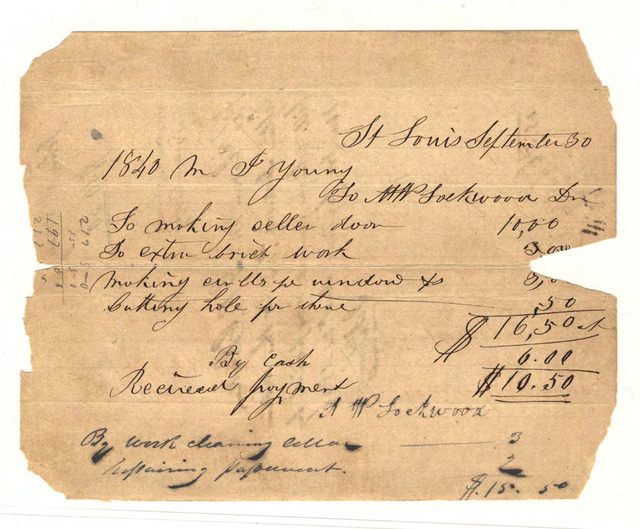 St Louis September 30
1840 M J Young
To A W Lockwood Dr
To making celler door 10,00
To extra brick work 3,00
making window &
Cutting hole for 50
$ 16,50
By Cash 6.00
Recieved payment $ 10.50
A W Lockwood
By work cleaning cellar 3
repairing 2
$.15.50